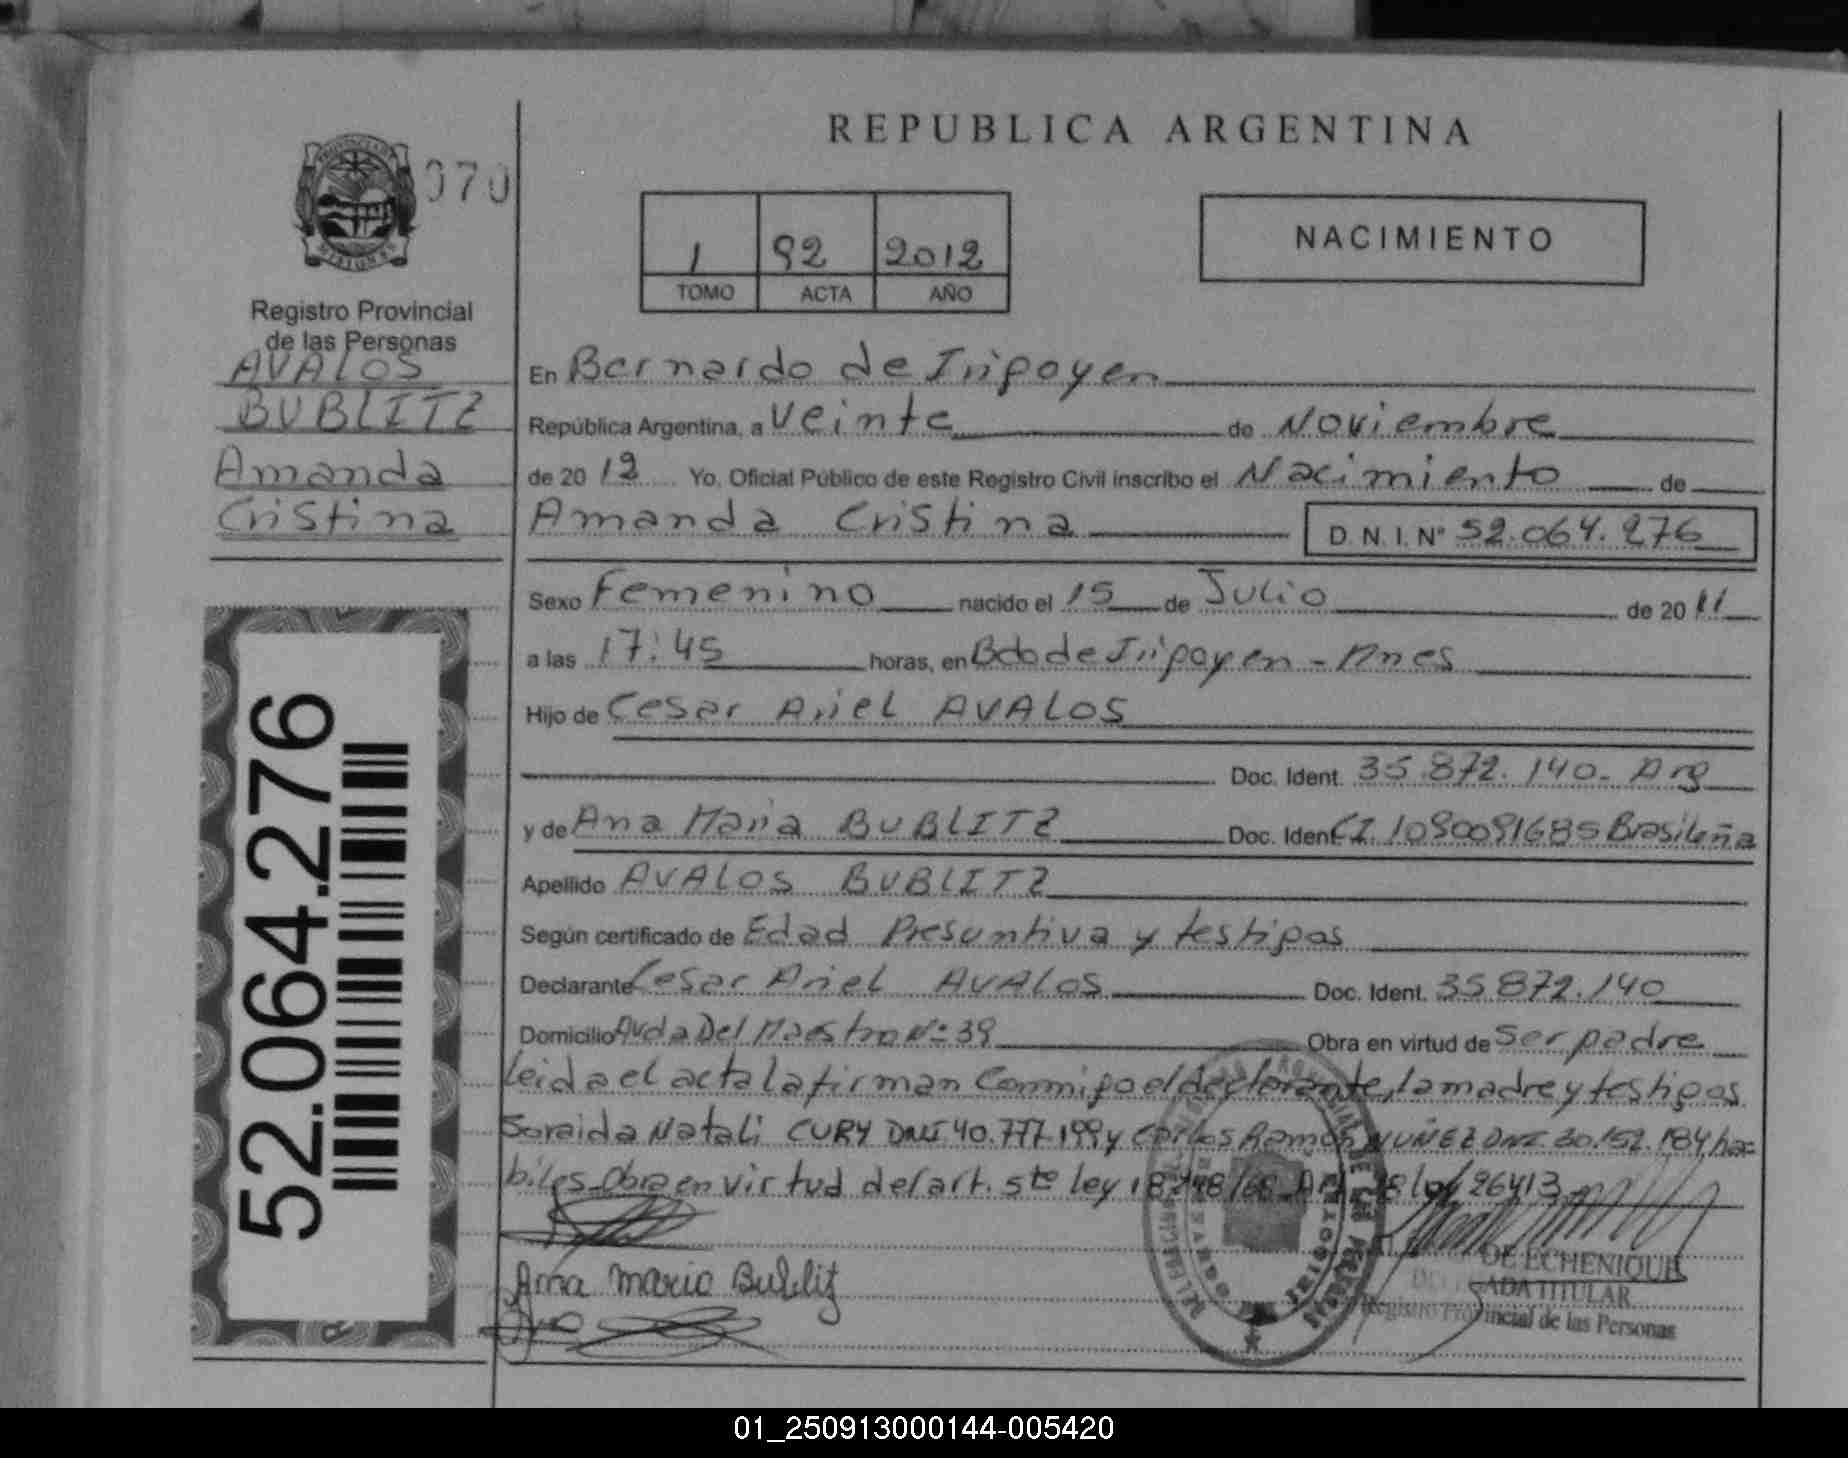 REPUBLICA ARGENTINA
070
1 92 2012
TOMO ACTA AÑO
NACIMIENTO
Registro Provincial
de las Personas
AVALOS
BUBLITZ
Amanda
Cristina
52.064.276
En Bernardo de Irigoyen
República Argentina, a veinte de Noviembre
de 2012 Yo, Oficial Público de este Registro Civil inscribo el Nacimiento de
Amanda Cristina D.N.I. Nº 52.064.276
Sexo Femenino nacido el 15 de Julio de 2011
a las 17:45 horas, en Bdo de Irigoyen - Mnes
Hijo de Cesar Ariel AVALOS
Doc. Ident. 35.872.140- Arg
y de Ana Maria BUBLITZ Doc. Ident. CI. 1090091685 Brasileña
Apellido AVALOS BUBLITZ
Según certificado de Edad Presuntiva y testigos
Declarante Cesar Ariel AVALOS Doc. Ident. 35.872.140
Domicilio Avda Del Maestro Nº 39 Obra en virtud de ser padre
Leida el acta la firman Conmigo el declarante, la madre y testigos
Soraida Natali CURY DNI 40.777.199 y Carlos Ramon NUÑEZ DNI. 30.152.184 ha=
biles. Obra en virtud del art. 5te ley 18.248/68 Art 28 ley 26413
Ana maria Bublitz
DE ECHENIQUE
DELEGADA TITULAR
Registro Provincial de las Personas
01_250913000144-005420